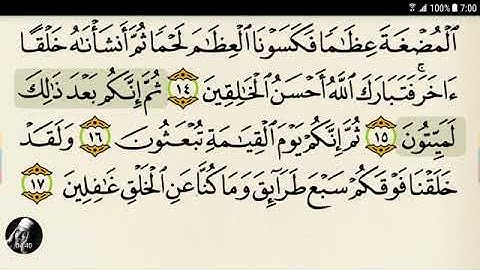 100% 7:00
ٱلْمُضْغَةَ عِظَٰمًا فَكَسَوْنَا ٱلْعِظَٰمَ لَحْمًا ثُمَّ أَنشَأْنَٰهُ خَلْقًا
ءَاخَرَ ۚ فَتَبَارَكَ ٱللَّهُ أَحْسَنُ ٱلْخَٰلِقِينَ ١٤ ثُمَّ إِنَّكُم بَعْدَ ذَٰلِكَ
لَمَيِّتُونَ ١٥ ثُمَّ إِنَّكُمْ يَوْمَ ٱلْقِيَٰمَةِ تُبْعَثُونَ ١٦ وَلَقَدْ
خَلَقْنَا فَوْقَكُمْ سَبْعَ طَرَآئِقَ وَمَا كُنَّا عَنِ ٱلْخَلْقِ غَٰفِلِينَ ١٧
04:40